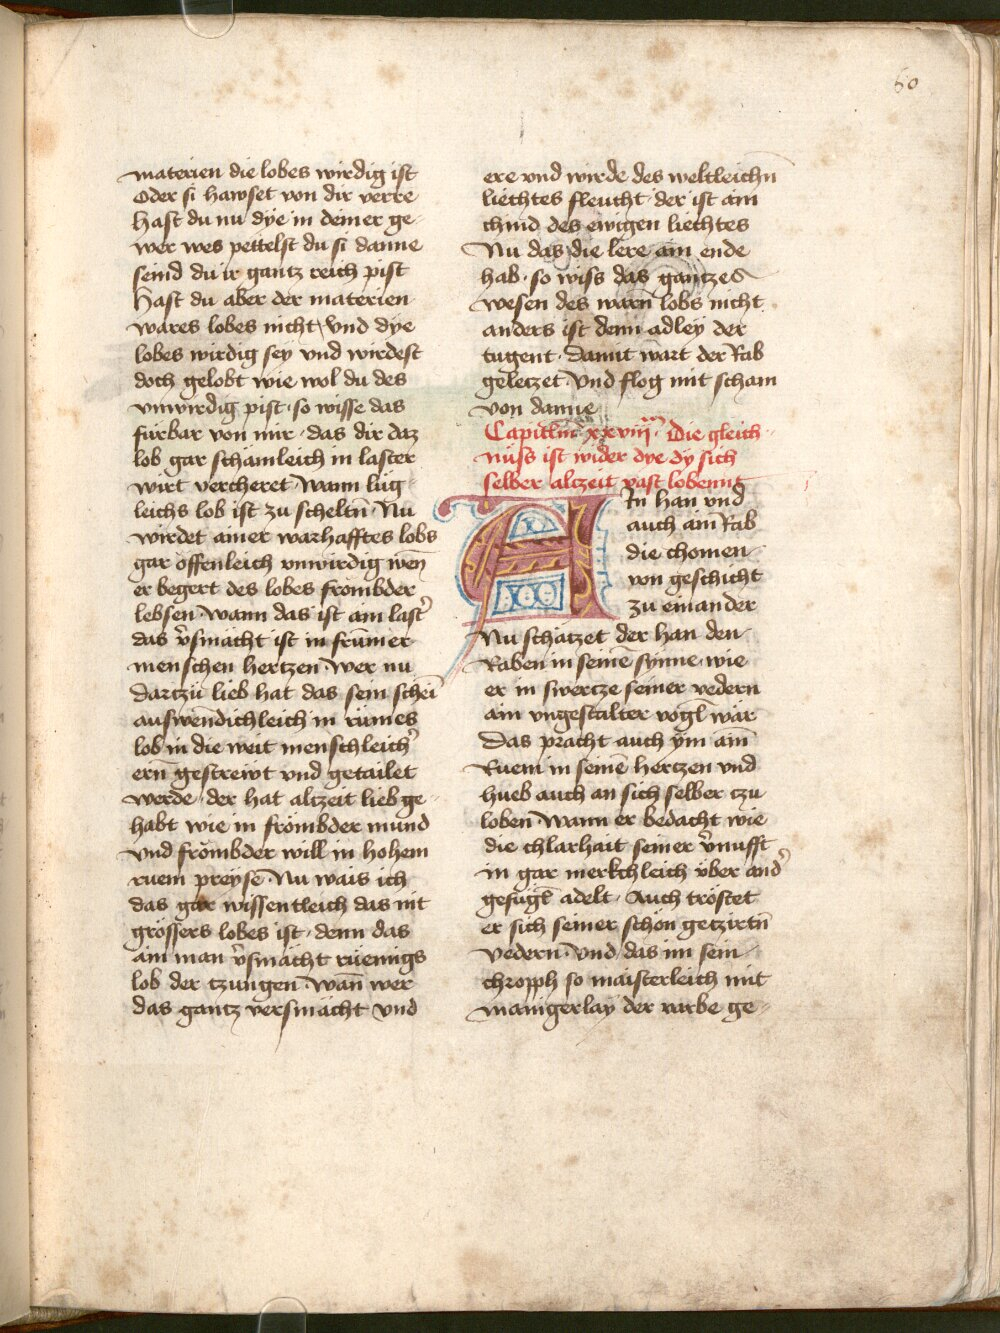 60
materien die lobes wirdig ist
Oder si hawset von dir verre
Hast du nu dye in deiner ge-
wer wes pettelst du si danne
seind du ir gantz reich pist
Hast du aber der materien
wares lobes nicht Vnd dye
lobes wirdig sey vnd wirdest
doch gelobt wie wol du des
vnwirdig pist · so wisse das
fürbar von mir · das dir daz
lob gar schamleich in laster
wirt vercheret Wann lug-
leichs lob ist zu scheltn̄ · Nu
wirdet ainer warhafftes lobs
gar offenleich vnwirdig wen̄
er begert des lobes frömbder
lebsen · Wann das ist ain last᷑
das v᷑smächt ist in frümer
menschen hertzen Wer nu
dartzü lieb hat das sein schei̅
auswendichleich in rümes
lob in die weit menschleich᷑
ern̄ gestrewt vnd getailet
werde · der hat altzeit lieb ge-
habt wie in frömbder mund
vnd frömbder will in hohem
ruem preyse̅ Nu wais ich
das gar wissentleich das nit
grössers lobes ist · denn das
ain man v᷑smächt rüemigs
lob der tzungen Wan̄ wer
das gantz versmächt vnd
ere vnd wirde des weltleichn̄
liechtes fleucht · der ist ain
chind des ewigen liechtes
Nu das die lere ain ende
hab · so wiss das gantzes
wesen des warn̄ lobs nicht
anders ist denn adley der
tugent · Damit wart der Rab
geletzet · Vnd flog mit scham
von danne
Capitlm̄ xxviij · Die gleich-
nüss ist wider dye dy sich
selber altzeit vast lobennt
AIn han vnd
auch ain̄ Rab
die chomen
von geschicht
zu einander
Nu schätzet der han den
Raben in seine̅ synne · wie
er in swertze seiner vedern
ain vngestalter vogl wär
Das pracht auch ym ain̄
Ruem in seine̅ hertzen vnd
hueb auch an sich selber tzu
loben Wann er bedacht wie
die chlarhait seiner v᷑nufft
in gar merkchleich über and᷑
gefügl̄ adelt · Auch tröstet
er sich seiner schön getzirtn̄
vedern · Vnd das im sein
chropph so maisterleich mit
manigerlay der varbe ge-